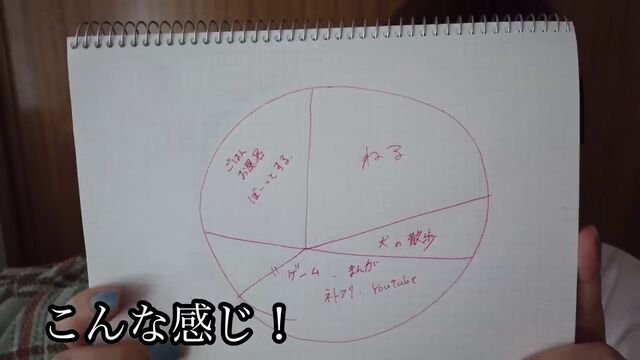 ねる
ごはん
お風呂
ぼーっとする。
犬の散歩
ゲーム、まんが
ネトフリ、Youtube
こんな感じ！